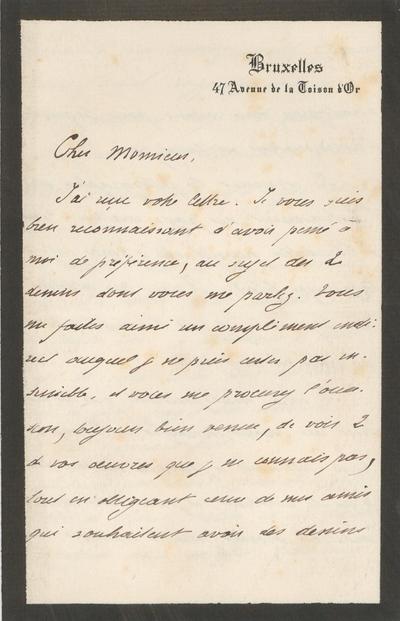 Bruxelles
47 Avenue de la Toison d'Or
Cher Monsieur,
J'ai reçu votre lettre. Je vous suis
bien reconnaissant d'avoir pensé à
moi de préférence, au sujet des 2
dessins dont vous me parlez. Vous
me faites ainsi un compliment indi-
rect auquel je ne puis rester pas in-
sensible, et vous me procurez l'occa-
sion, toujours bien venue, de voir 2
de vos oeuvres que je ne connais pas,
tout en obligeant ceux de mes amis
qui souhaitent avoir des dessins